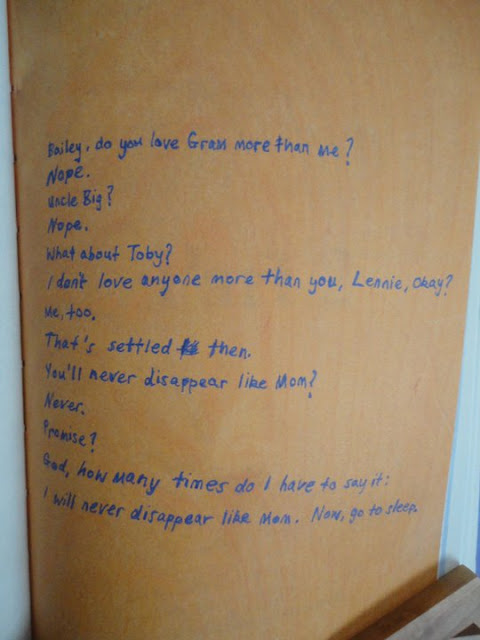 Bailey, do you love Gram more than me?
Nope.
Uncle Big?
Nope.
What about Toby?
I don't love anyone more than you, Lennie, okay?
Me, too.
That's settled then.
You'll never disappear like Mom?
Never.
Promise?
God, how many times do I have to say it:
I will never disappear like Mom. Now, go to sleep.